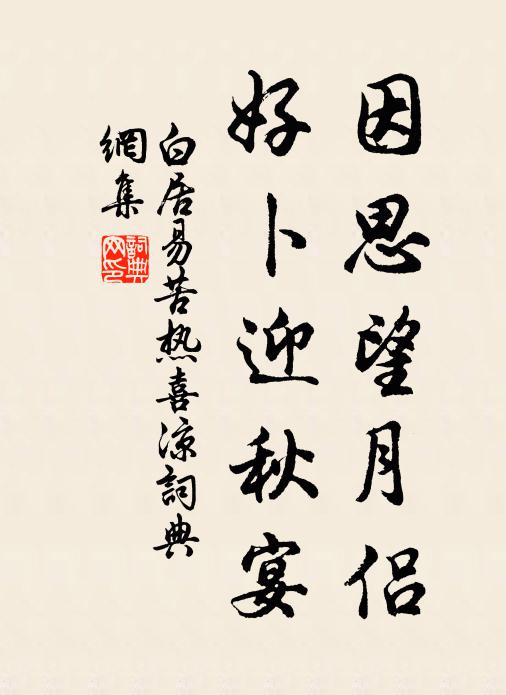 因思望月侣
好卜迎秋宴
白居易苦热喜凉詞典
網集
詞典网印